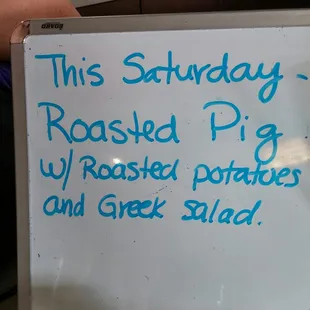 This Saturday -
Roasted Pig
w/ Roasted potatoes
and Greek salad.